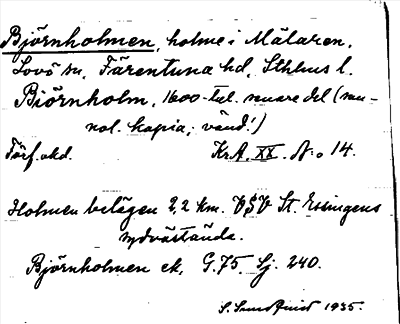 Björnholmen, holme i Mälaren,
Lovö sn, Färentuna hd, Sthlms l.
Björnholm, 1600-tal. senare del (sen-
nol. kopia; vänd!)
Förf. okd. KrA, XX. No 14.
Holmen belägen 2,2 km. VSV St. Essingens
sydvästända.
Björnholmen ek, G.75 Sj. 240.
S. 1935.